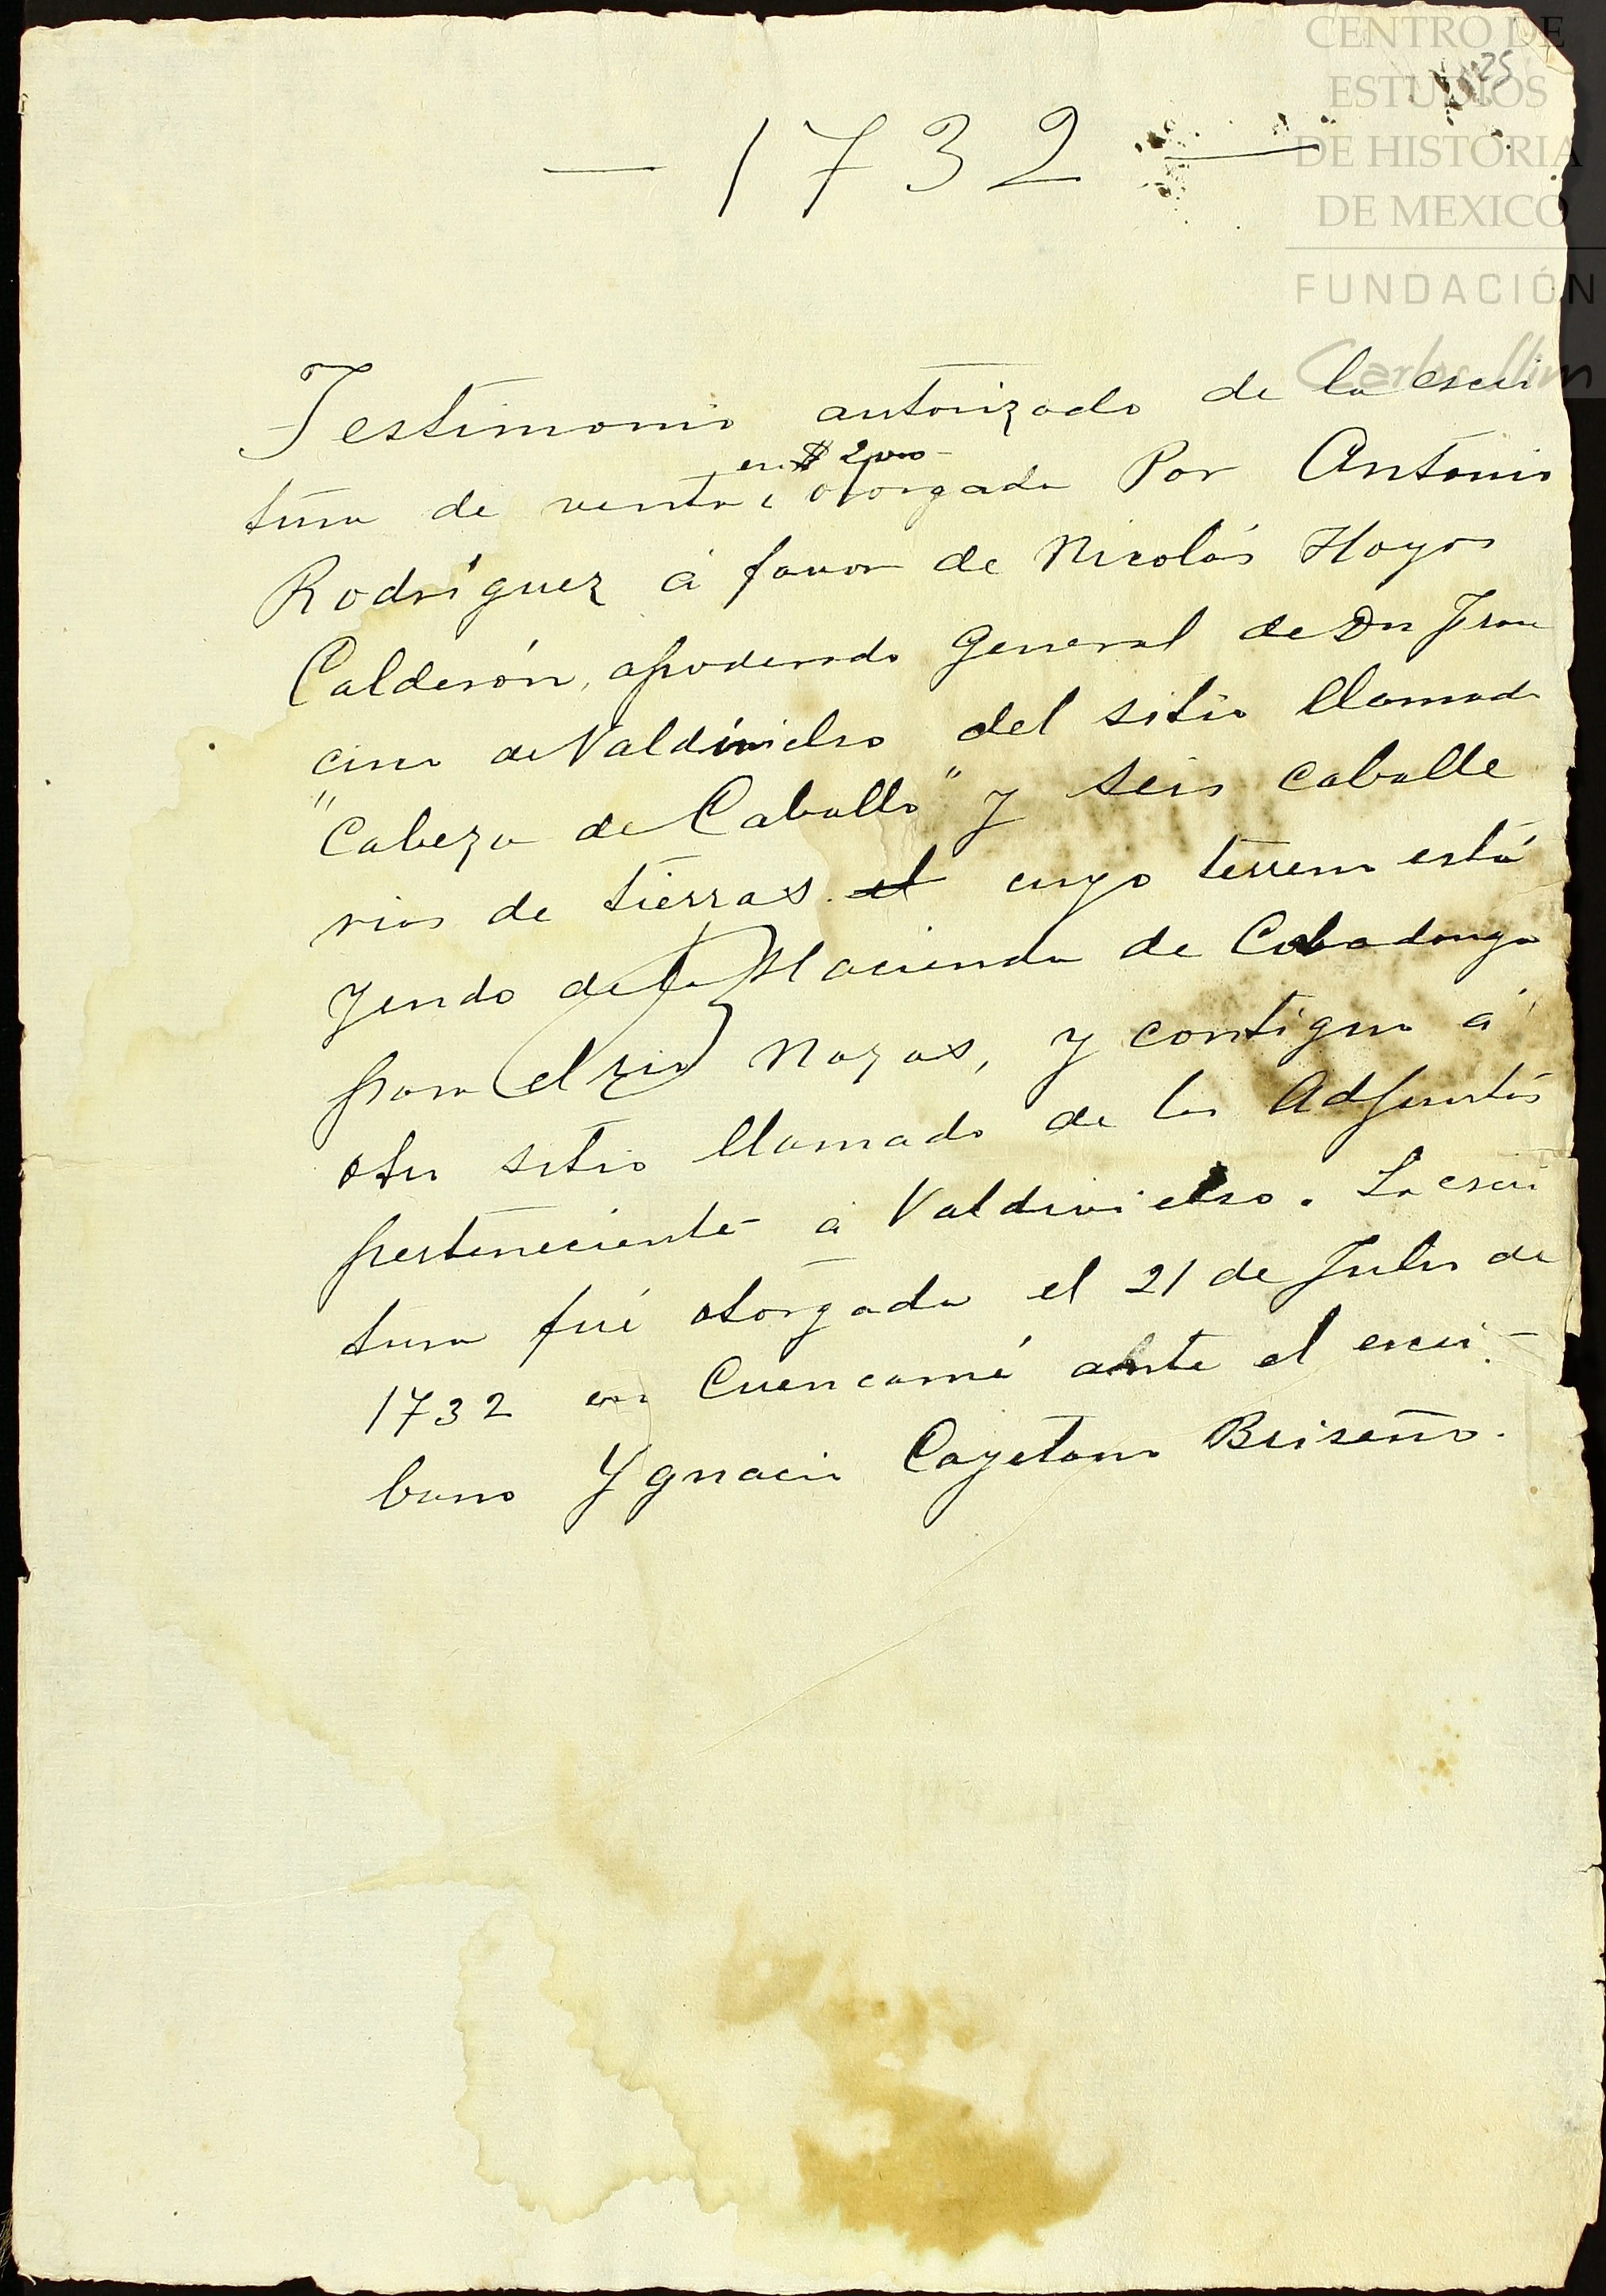 CENTRO DE
ESTUDIOS
DE HISTORIA
DE MEXICO
FUNDACIÓN
Carlos Slim
25
— 1732 —
Testimonio autorizado de la escri
en $ 2,000
tura de venta, otorgada Por Antonio
Rodríguez á favor de Nicolás Hoyos
Calderón, apoderado General de Dn Fran
cisco de Valdivielso del sitio llamado
"Cabeza de Caballo" y seis caballe
rias de tierras el cuyo terreno está
yendo de la Hacienda de Cobadonga
para el rio Nazas, y contiguo á
otro sitio llamado de los Adjuntos
perteneciente á Valdivielso. La escri
tura fué otorgada el 21 de Julio de
1732 en Cuencamé ante el escri-
bano Ygnacio Cayetano Briseño.